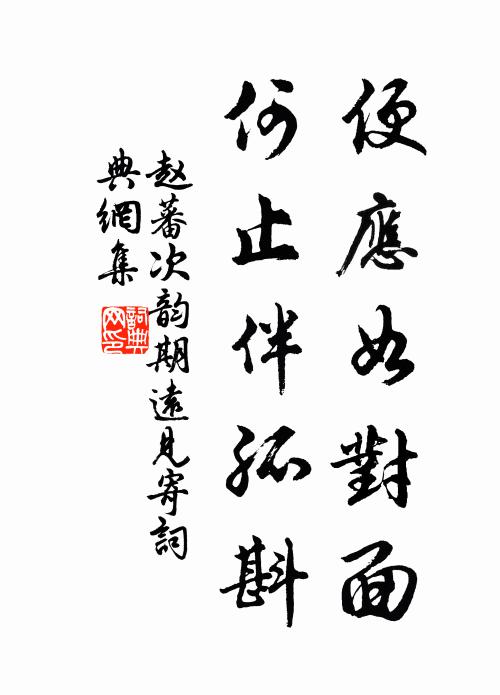 便應如對面
何止伴孤斟
赵蕃次韵期遠見寄詞
典網集
詞典网印